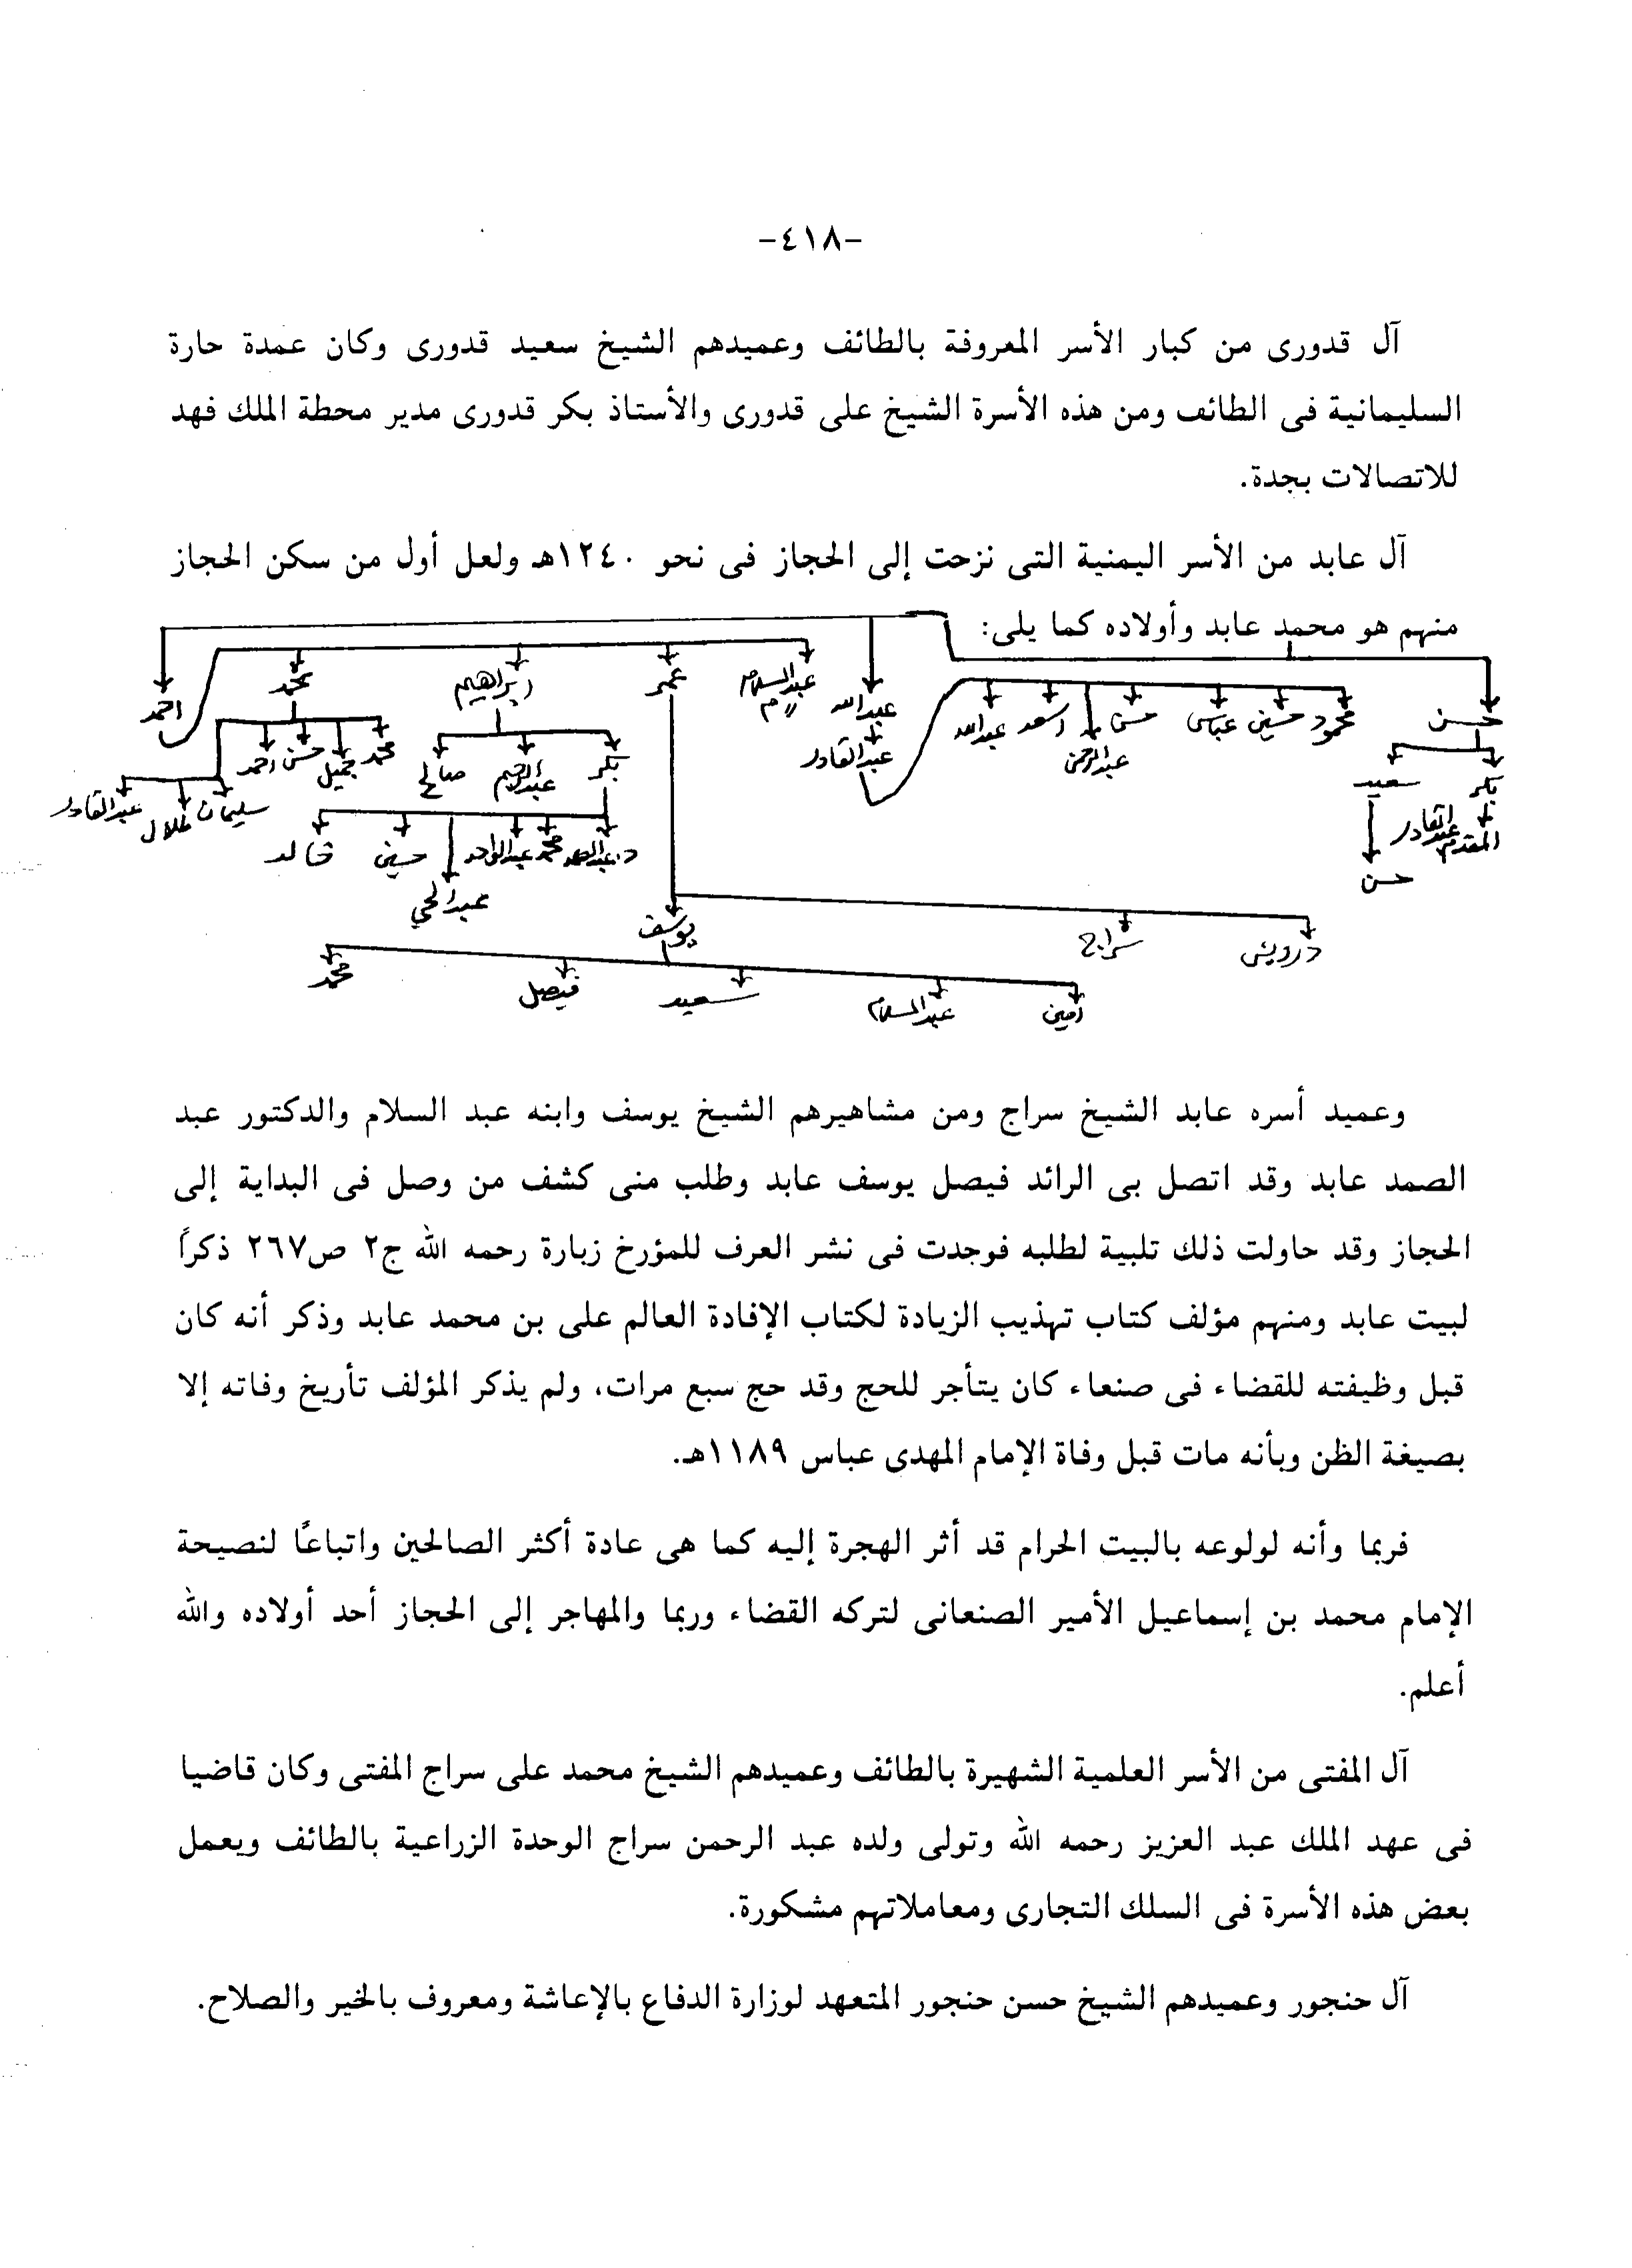 -٤١٨-
آل قدورى من كبار الأسر المعروفة بالطائف وعميدهم الشيخ سعيد قدورى وكان عمدة حارة
السليمانية فى الطائف ومن هذه الأسرة الشيخ على قدورى والأستاذ بكر قدورى مدير محطة الملك فهد
للاتصالات بجدة.
آل عابد من الأسر اليمنية التى نزحت إلى الحجاز فى نحو ١٢٤٠هـ ولعل أول من سكن الحجاز
منهم هو محمد عابد وأولاده كما يلى:
حسن عبدالله احمد
محمود حسين عباس حسن عبدالرحمن اسعد عبدالله
عبدالسلام عمر ابراهيم محمد
م
بكر سعيد
عبدالقادر
بكر عبدالرحيم صالح
محمد جميل حسن احمد
سليمان طلال عبدالقادر
المقدم عبدالقادر
حسن
د.عبدالصمد محمد عبدالواحد عبدالحي حسين خالد
درويش سراج يوسف
امين عبدالسلام سعيد فيصل محمد
وعميد أسره عابد الشيخ سراج ومن مشاهيرهم الشيخ يوسف وابنه عبد السلام والدكتور عبد
الصمد عابد وقد اتصل بى الرائد فيصل يوسف عابد وطلب منى كشف من وصل فى البداية إلى
الحجاز وقد حاولت ذلك تلبية لطلبه فوجدت فى نشر العرف للمؤرخ زبارة رحمه الله ج٢ ص٢٦٧ ذكراً
لبيت عابد ومنهم مؤلف كتاب تهذيب الزيادة لكتاب الإفادة العالم على بن محمد عابد وذكر أنه كان
قبل وظيفته للقضاء فى صنعاء كان يتأجر للحج وقد حج سبع مرات، ولم يذكر المؤلف تأريخ وفاته إلا
بصيغة الظن وبأنه مات قبل وفاة الإمام المهدى عباس ١١٨٩هـ.
فربما وأنه لولوعه بالبيت الحرام قد أثر الهجرة إليه كما هى عادة أكثر الصالحين واتباعًا لنصيحة
الإمام محمد بن إسماعيل الأمير الصنعانى لتركه القضاء وربما والمهاجر إلى الحجاز أحد أولاده والله
أعلم.
آل المفتى من الأسر العلمية الشهيرة بالطائف وعميدهم الشيخ محمد على سراج المفتى وكان قاضيا
فى عهد الملك عبد العزيز رحمه الله وتولى ولده عبد الرحمن سراج الوحدة الزراعية بالطائف ويعمل
بعض هذه الأسرة فى السلك التجارى ومعاملاتهم مشكورة.
آل حنجور وعميدهم الشيخ حسن حنجور المتعهد لوزارة الدفاع بالإعاشة ومعروف بالخير والصلاح.